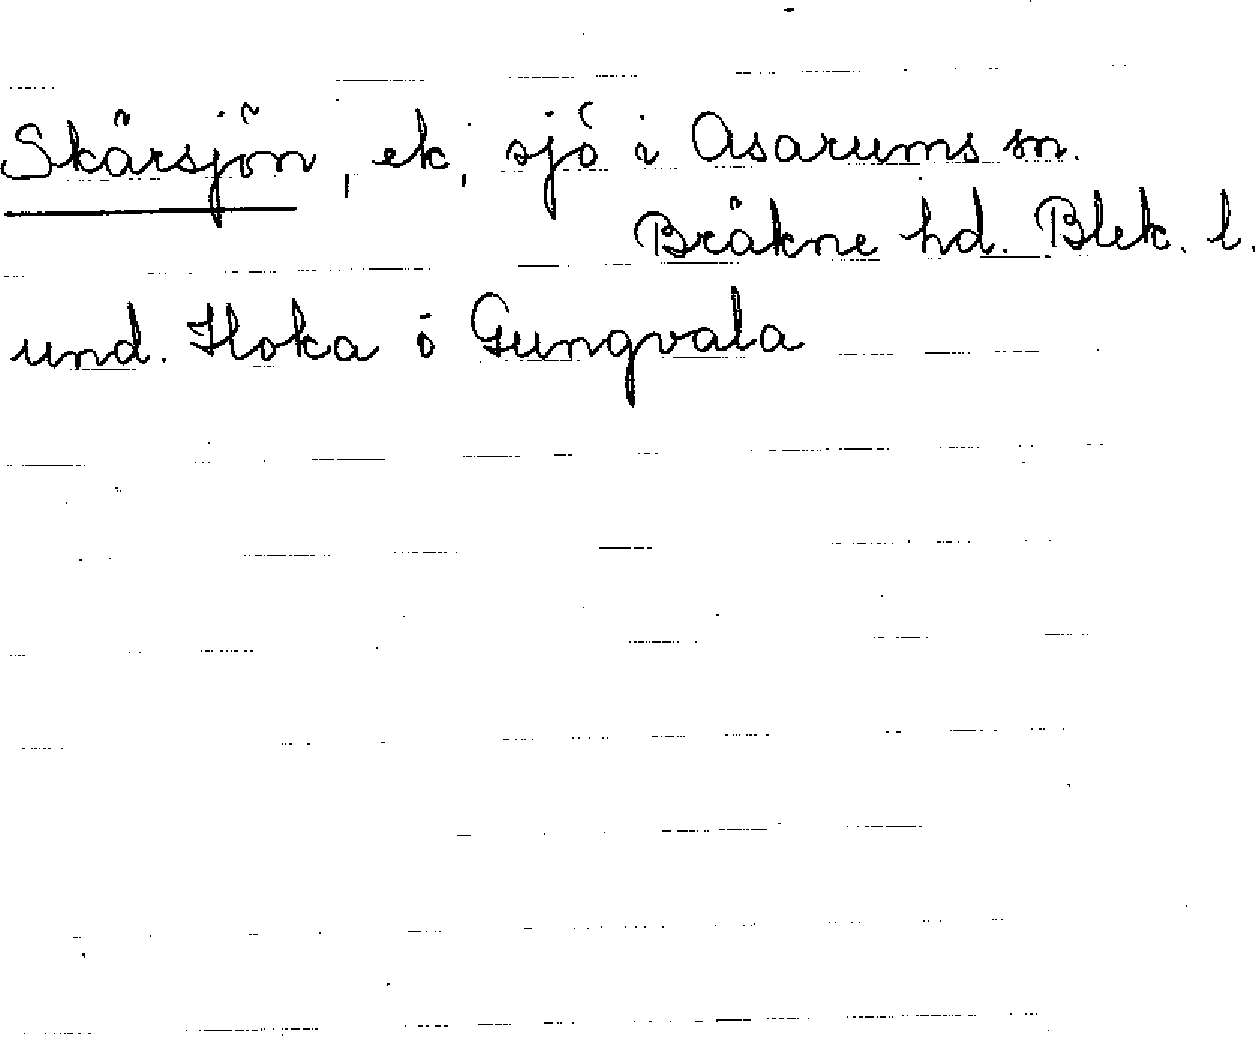 Skärsjön, ek, sjö i Asarums sn.
Bräkne hd. Blek. l.
und. Hoka o Gungvala